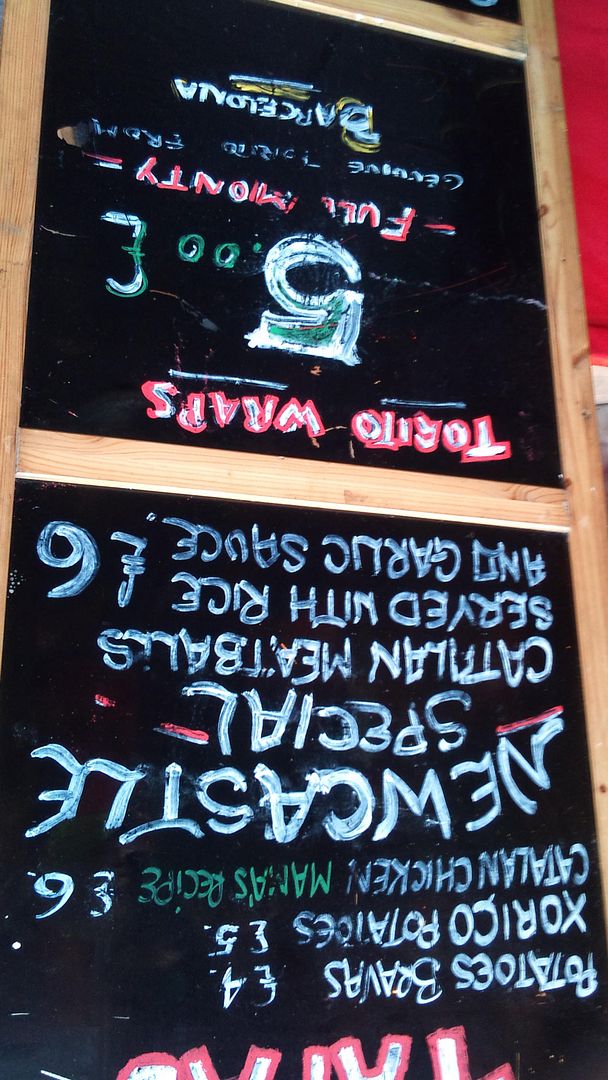 TAPAS
POTATOES BRAVAS £4.
XORIÇO POTATOES £5.
CATALAN CHICKEN MAMA'S RECIPE £6.
NEWCASTLE
- SPECIAL -
CATALAN MEATBALLS
SERVED WITH RICE
AND GARLIC SAUCE. £6
TORITO WRAPS
5.00 £
- FULL MONTY -
GENUINE TORITO FROM
BARCELONA